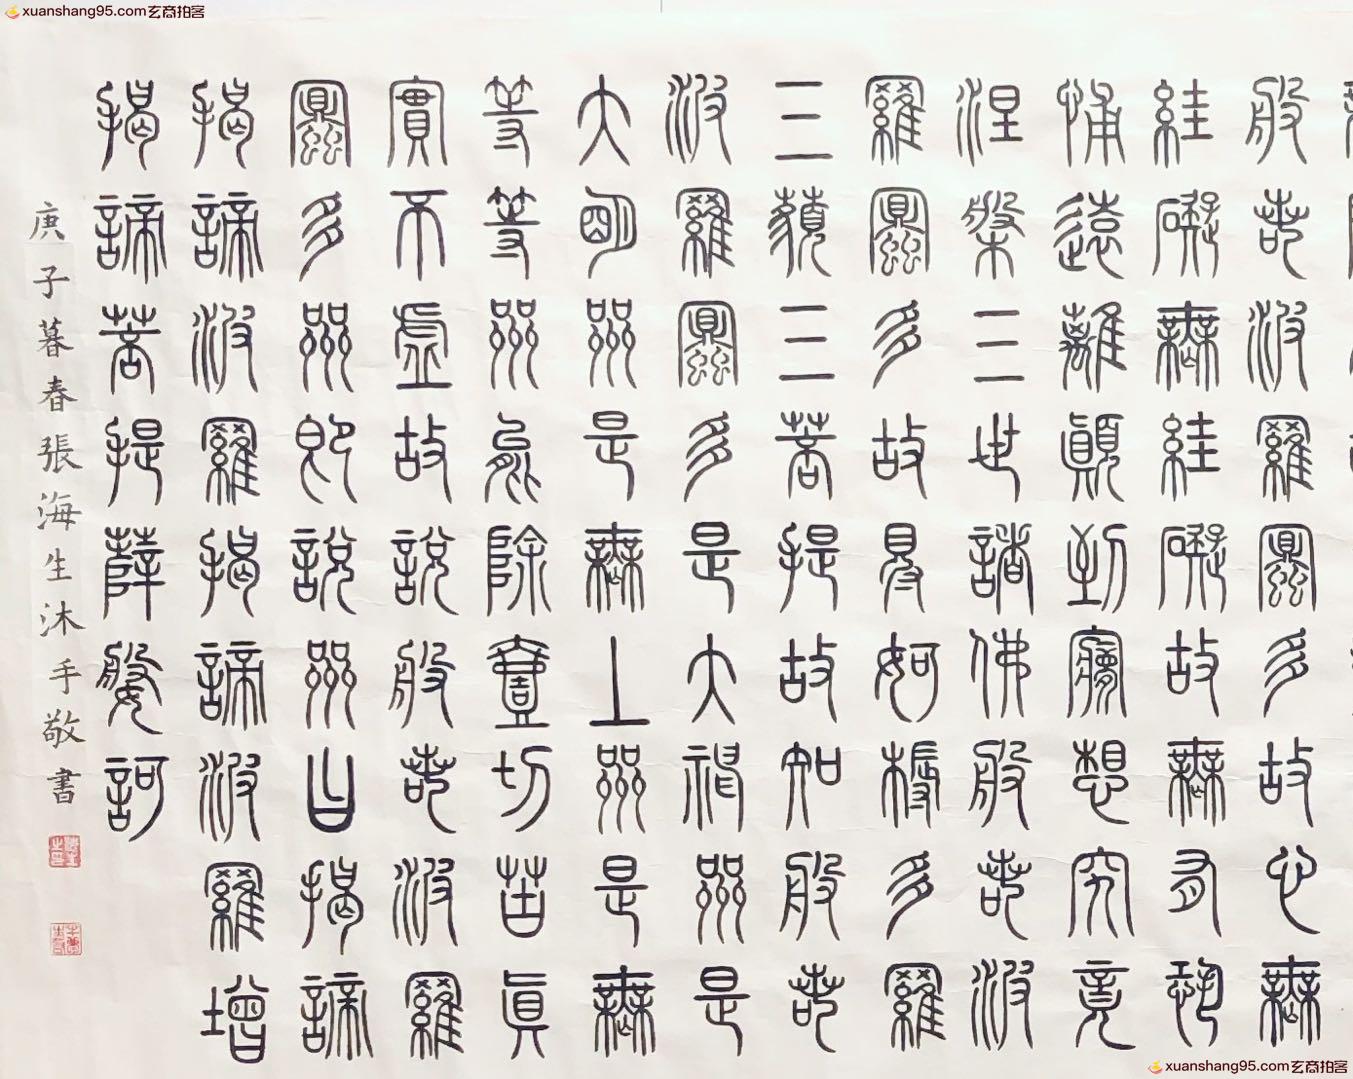 xuanshang95.com玄商拍客
般若波羅蜜多故心無
絓礙無絓礙故無有恐
怖遠離顛到夢想究竟
涅槃三世諸佛般若波
羅蜜多故㝵妸槈多羅
三藐三菩提故知般若
波羅蜜多是大神呪是
大明呪是無上呪是無
等等呪能除壹切苦眞
實不虛故說般若波羅
蜜多呪即說呪曰揭諦
揭諦波羅揭諦波羅增
揭諦菩提薩婆訶
庚子暮春張海生沐手敬書
xuanshang95.com玄商拍客